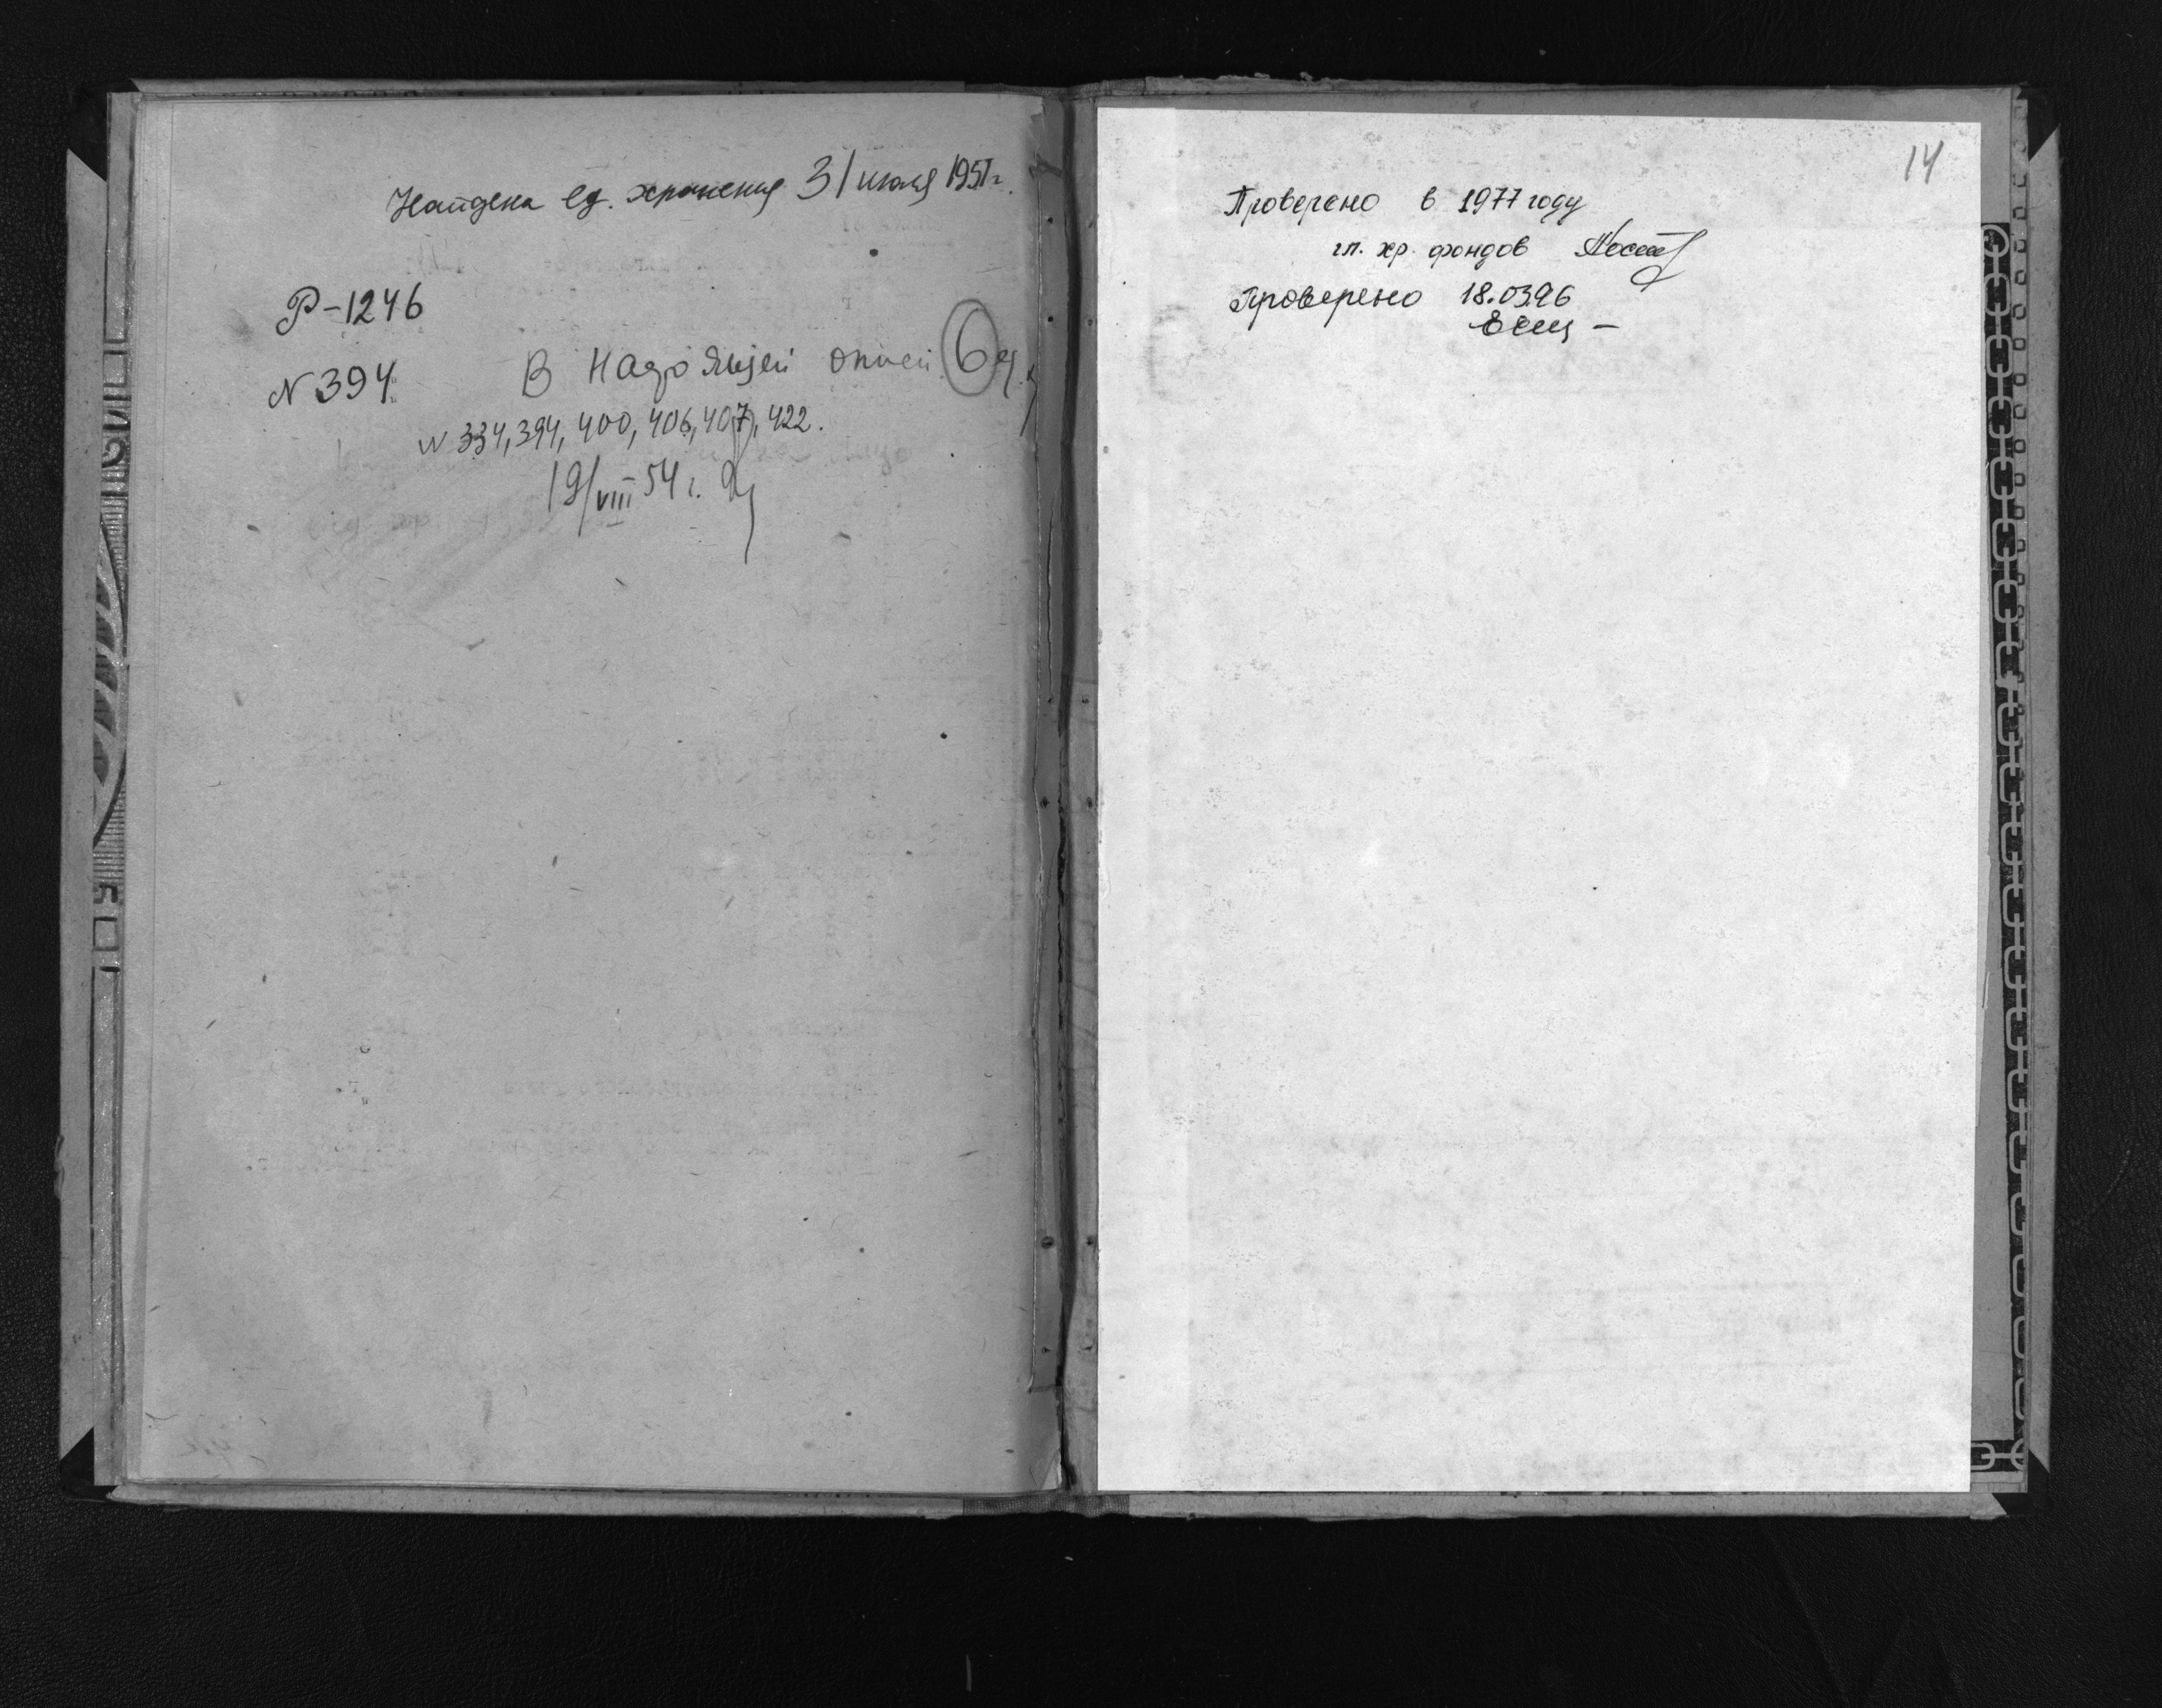 Найдена ед. хранения 31 июля 1951 г.
Р-1246
№ 394
В настоящей описи 6 ед.
№ 334, 394, 400, 406, 407, 422.
19/VIII 54 г.
14
Проверено в 1977 году
гл. хр. фондов
Проверено 18.03.96